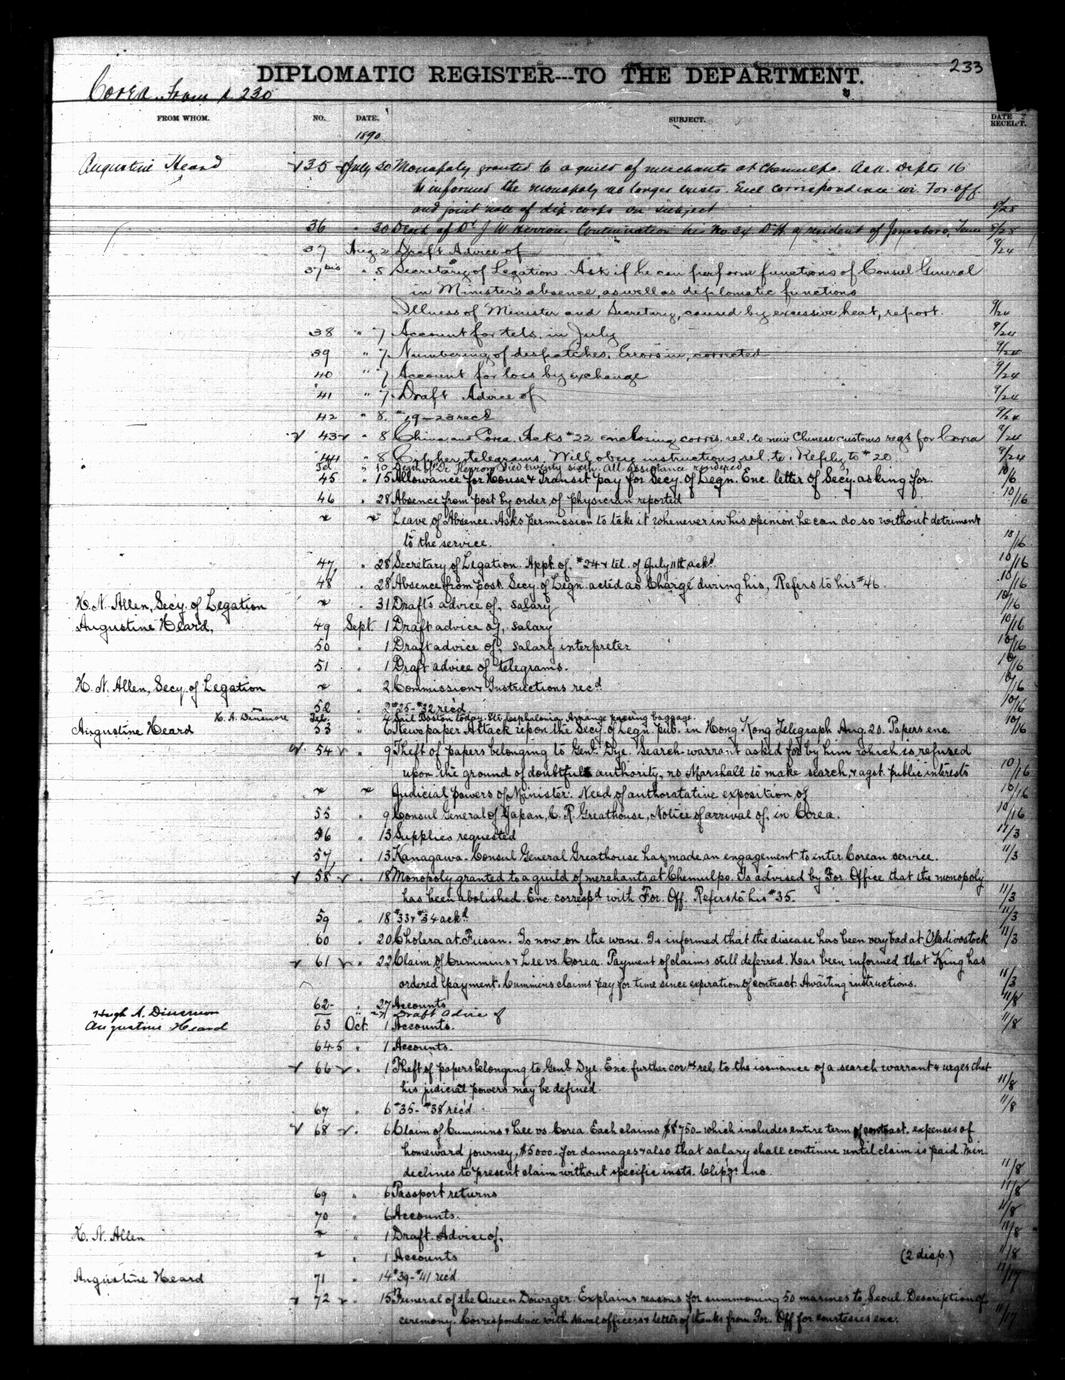 233
DIPLOMATIC REGISTER---TO THE DEPARTMENT.
Corea from p. 230
FROM WHOM. NO. DATE. SUBJECT. DATE RECEIPT.
1890.
Augustine Heard √ 35 √ July 30 Monopoly granted to a guild of merchants at Chemulpo. Ack. Depts 16
is informed the monopoly no longer exists. Encl correspondence wi. For. off
and joint note of dip. corps on subject 9/25
36 " 30 Death of Dr. J W Herron. Continuation his No 34 Dr H. a resident of Jonesboro, Tenn 9/25
37 Aug 2 Draft Advice of 9/24
37 bis " 5 Secretary of Legation. Ask if he can perform functions of Consul General
in Minister's absence, as well as diplomatic functions
Illness of Minister and Secretary, caused by excessive heat, report. 9/24
38 " 7 Account for tels. in July 9/24
39 " 7 Numbering of despatches. Errors in, corrected 9/24
40 " 7 Account for loss by exchange 9/24
41 " 7 Draft Advice of 9/24
42 " 8 #19-23 recd 9/24
√ 43 √ " 8 China and Corea. Acks #22 enclosing corres. rel. to new Chinese customs regs for Corea 9/24
44 " 8 Cipher telegrams. Will obey instructions rel. to. Refers to #20 9/24
" 10 Death of Dr Herron, Died twenty sixth. All assistance rendered
45 " 15 Allowance for House & Transit pay for Secy. of Legn. Enc. letter of Secy. asking for. 10/6
46 " 28 Absence from post by order of physician reported 10/16
" " Leave of Absence. Asks permission to take it whenever in his opinion he can do so without detriment
to the service. 10/16
47 " 28 Secretary of Legation. Appt. of. #24 & tel. of July 11th ackd 10/16
48 " 28 Absence from post. Secy. of Legn. acted as Chargé during his, Refers to his #46. 10/16
H. N. Allen, Secy. of Legation " " 31 Drafts advice of, salary 10/16
Augustine Heard, 49 Sept. 1 Draft advice of, salary 10/16
50 " 1 Draft advice of, salary interpreter 10/16
51 " 1 Draft advice of telegrams. 10/16
H. N. Allen, Secy. of Legation " " 2 Commission & Instructions recd 10/16
52 " 2 #25-#32 rec'd 10/16
H. A. Dinsmore Tel. " 4 Sail Boston today. Str. Cephalonia. Arrange passing baggage.
Augustine Heard 53 " 6 Newspaper Attack upon the Secy. of Legn. pub. in Hong Kong Telegraph Aug. 20. Papers enc. 10/16
√ 54 √ " 9 Theft of papers belonging to Genl. Dye. Search warrant asked for by him which is refused
upon the ground of doubtful authority, no Marshall to make search, & agst. public interests 10/16
" " Judicial powers of Minister. Need of authoratative exposition of 10/16
55 " 9 Consul General of Japan, C. R. Greathouse, Notice of arrival of, in Corea. 10/16
56 " 13 Supplies requested 11/3
57 " 13 Kanagawa. Consul General Greathouse has made an engagement to enter Corean service. 11/3
√ 58 √ " 18 Monopoly granted to a guild of merchants at Chemulpo. Is advised by For. Office that the monopoly
has been abolished. Enc. correspd. with For. Off. Refers to his #35. 11/3
59 " 18 #33 & #34 ackd. 11/3
60 " 20 Cholera at Fusan. Is now on the wane. Is informed that the disease has been very bad at Vladivostock 11/3
√ 61 √ " 22 Claim of Cummins & Lee vs. Corea. Payment of claims still deferred. Has been informed that King has
ordered payment. Cummins claims pay for time since expiration of contract. Awaiting instructions. 11/3
62 " 27 Accounts 11/8
Hugh A. Dinsmore " 27 Draft advice of
Augustine Heard 63 Oct. 1 Accounts. 11/8
64-5 " 1 Accounts.
√ 66 √ " 1 Theft of papers belonging to Genl. Dye. Enc. further cor. rel. to the issuance of a search warrant & urges that
his judicial powers may be defined. 11/8
67 " 6 #35-#38 rec'd. 11/8
√ 68 √ " 6 Claim of Cummins & Lee vs. Corea. Each claims $8750- which includes entire term of contract. expenses of
homeward journey, $5000- for damages & also that salary shall continue until claim is paid. Min.
declines to present claim without specific insts. Clipgs. enc. 11/8
69 " 6 Passport returns 11/8
70 " 6 Accounts. 11/8
H. N. Allen " " 1 Draft. Advice of. 11/8
" " 1 Accounts (2 disp.) 11/8
Augustine Heard 71 " 14 #39-#41 rec'd. 11/17
√ 72 √ " 15 Funeral of the Queen Dowager. Explains reasons for summoning 50 marines to Seoul. Description of
ceremony. Correspondence with Naval officers & letter of thanks from For. Off for courtesies enc. 11/17